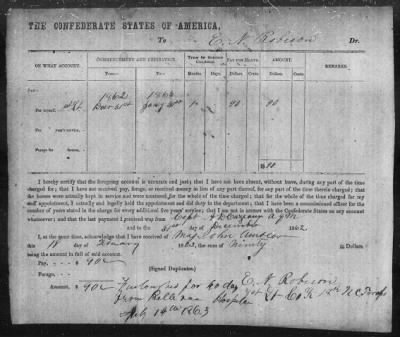 THE CONFEDERATE STATES OF AMERICA,
To E. N. Robison Dr.
ON WHAT ACCOUNT. COMMENCEMENT AND EXPIRATION. TERM OF SERVICE CHARGED. PAY PER MONTH. AMOUNT. REMARKS.
FROM— TO— Months Days. Dollars Cents. Dollars Cents.
PAY—
1862 1863
For myself, 1st Lt Dec 31st Jany 31st 1 90 90
For years' service,
FORAGE—
For horses,
$ 90
I hereby certify that the foregoing account is accurate and just; that I have not been absent, without leave, during any part of the time
charged for; that I have not received pay, forage, or received money in lieu of any part thereof, for any part of the time therein charged; that
the horses were actually kept in service and were mustered for the whole of the time charged; that for the whole of the time charged for my
staff appointment, I actually and legally held the appointment and did duty in the department; that I have been a commissioned officer for the
number of years stated in the charge for every additional five years' service; that I am not in arrears with the Confederate States on any account
whatsoever; and that the last payment I received was from Capt A. D. A Q M
and to the 31st day of December 1862
At the same time, acknowledge that I have received of Maj John
this 18 day of 1863, the sum of Ninety Dollars
being the amount in full of said account.
Pay, - - $ 90
Forage, - -
(Signed Duplicates.)
Amount, $ 90 Furloughed for 40 days
E. N. Robison
from Hospital 1st Lt Co K NC Troops
14th 1863